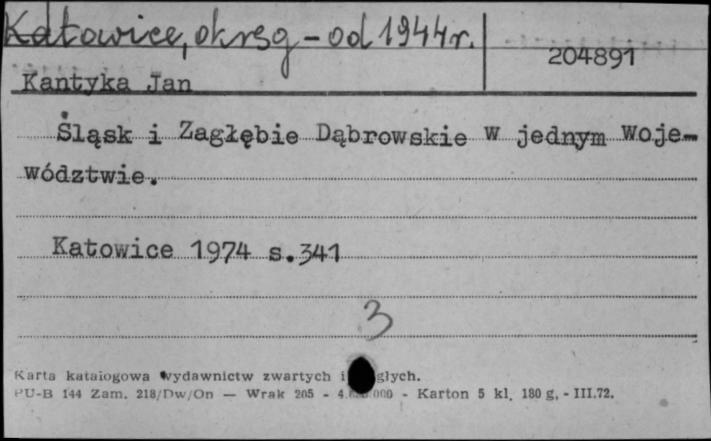 Katowice, okręg - od 1944 r.
204891
Kantyka Jan
Śląsk i Zagłębie Dąbrowskie w jednym woje-
wództwie.
Katowice 1974 s.341
3
Karta katalogowa wydawnictw zwartych i głych.
PU-B 144 Zam. 218/Dw/On — Wrak 205 - - Karton 5 kl. 180 g. - III.72.